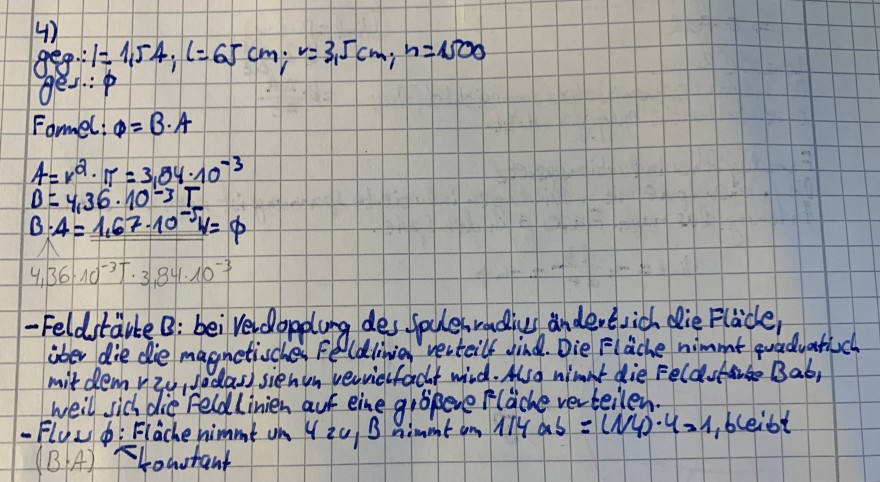 4)
geg.: I = 1,5A; l = 65 cm; r = 3,5 cm; n = 1500
ges.: ϕ
Formel: ϕ = B·A
A = r²·π = 3,84·10⁻³
B = 4,36·10⁻³ T
B·A = 1,67·10⁻⁵ = ϕ
4,36·10⁻³T·3,84·10⁻³
- Feldstärke B: bei Verdopplung des Spulenradius ändert sich die Fläche,
über die die magnetischen Feldlinien verteilt sind. Die Fläche nimmt quadratisch
mit dem r zu, sodass sie nun vervierfacht wird. Also nimmt die Feldstärke B ab,
weil sich die Feldlinien auf eine größere Fläche verteilen.
- Fluss ϕ: Fläche nimmt um 4 zu, B nimmt um 1/4 ab = (1/4)·4 = 1, bleibt
(B·A) konstant